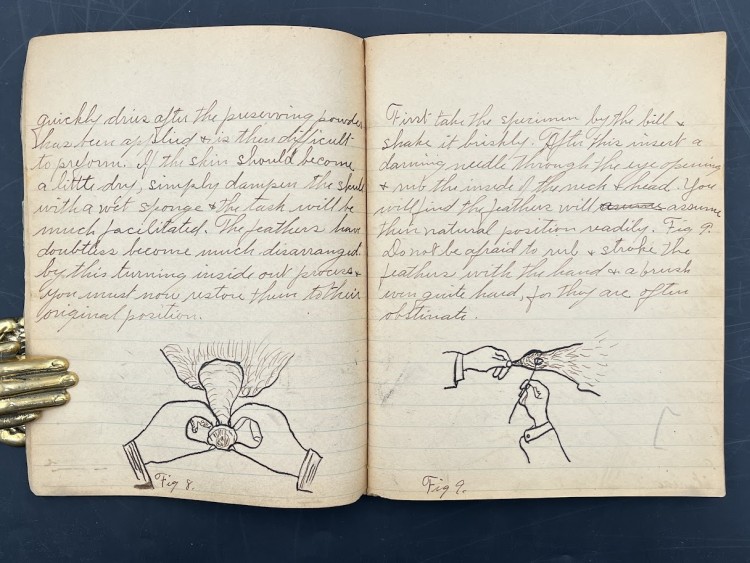 quickly dries after the preserving powder
has been applied & is then difficult
to preform. If the skin should become
a little dry, simply dampen the skull
with a wet sponge & the task will be
much facilitated. The feathers have
doubtless become much disarranged
by this turning inside out process &
you must now restore them to their
original position.
Fig 8.
First take the specimen by the bill &
shake it briskly. After this insert a
darning needle through the eye opening
& rub the inside of the neck & head. You
will find the feathers will assume
their natural position readily. Fig 9.
Do not be afraid to rub & stroke the
feathers with the hand & a brush
even quite hard, for they are often
obstinate.
Fig 9.